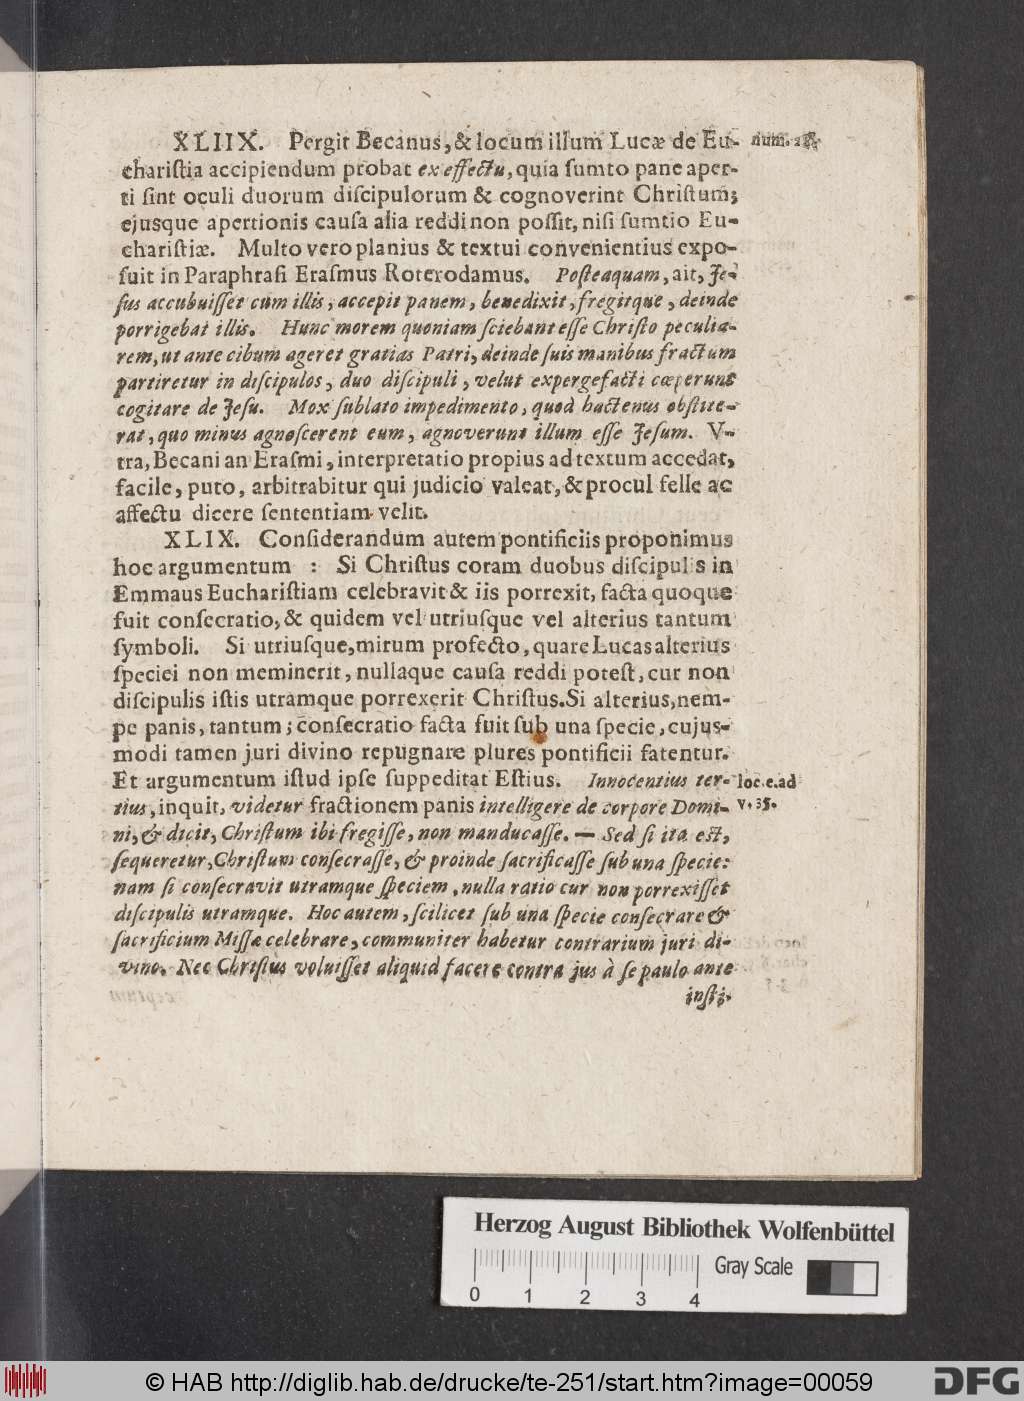 XLIIX. Pergit Becanus, & locum illum Lucæ de Eu-
chariſtia accipiendum probat ex effectu, quia ſumto pane aper-
ti ſint oculi duorum diſcipulorum & cognoverint Chriſtum;
ejusque apertionis cauſa alia reddi non poſſit, niſi ſumtio Eu-
chariſtiæ. Multo vero planius & textui convenientius expo-
ſuit in Paraphraſi Eraſmus Roterodamus. Poſteaquam, ait, Je-
ſus accubuiſſet cum illis, accepit panem, benedixit, fregitque, deinde
porrigebat illis. Hunc morem quoniam ſciebant eſſe Chriſto peculia-
rem, ut ante cibum ageret gratias Patri, deinde ſuis manibus fractum
partiretur in diſcipulos, duo diſcipuli, velut expergefacti cœperunt
cogitare de Jeſu. Mox ſublato impedimento, quod hactenus obſtite-
rat, quo minus agnoſcerent eum, agnoverunt illum eſſe Jeſum. V-
tra, Becani an Eraſmi, interpretatio propius ad textum accedat,
facile, puto, arbitrabitur qui judicio valeat, & procul felle ac
affectu dicere ſententiam velit.
XLIX. Conſiderandum autem pontificiis proponimus
hoc argumentum : Si Chriſtus coram duobus diſcipulis in
Emmaus Euchariſtiam celebravit & iis porrexit, facta quoque
fuit conſecratio, & quidem vel utriuſque vel alterius tantum
ſymboli. Si utriuſque, mirum profecto, quare Lucas alterius
ſpeciei non meminerit, nullaque cauſa reddi poteſt, cur non
diſcipulis iſtis utramque porrexerit Chriſtus. Si alterius, nem-
pe panis, tantum; conſecratio facta fuit ſub una ſpecie, cujus-
modi tamen juri divino repugnare plures pontificii fatentur.
Et argumentum iſtud ipſe ſuppeditat Eſtius. Innocentius ter-
tius, inquit, videtur fractionem panis intelligere de corpore Domi-
ni, & dicit, Chriſtum ibi fregiſſe, non manducaſſe. — Sed ſi ita eſt,
ſequeretur, Chriſtum conſecraſſe, & proinde ſacrificaſſe ſub una ſpecie:
nam ſi conſecravit utramque ſpeciem, nulla ratio cur non porrexiſſet
diſcipulis utramque. Hoc autem, ſcilicet ſub una ſpecie conſecrare &
ſacrificium Miſſæ celebrare, communiter habetur contrarium juri di-
vino. Nec Chriſtus voluiſſet aliquid facere contra jus à ſe paulo ante
inſti-
num.
loc. e. ad
v. 35.
Herzog August Bibliothek Wolfenbüttel
Gray Scale
0 1 2 3 4
© HAB http://diglib.hab.de/drucke/te-251/start.htm?image=00059
DFG